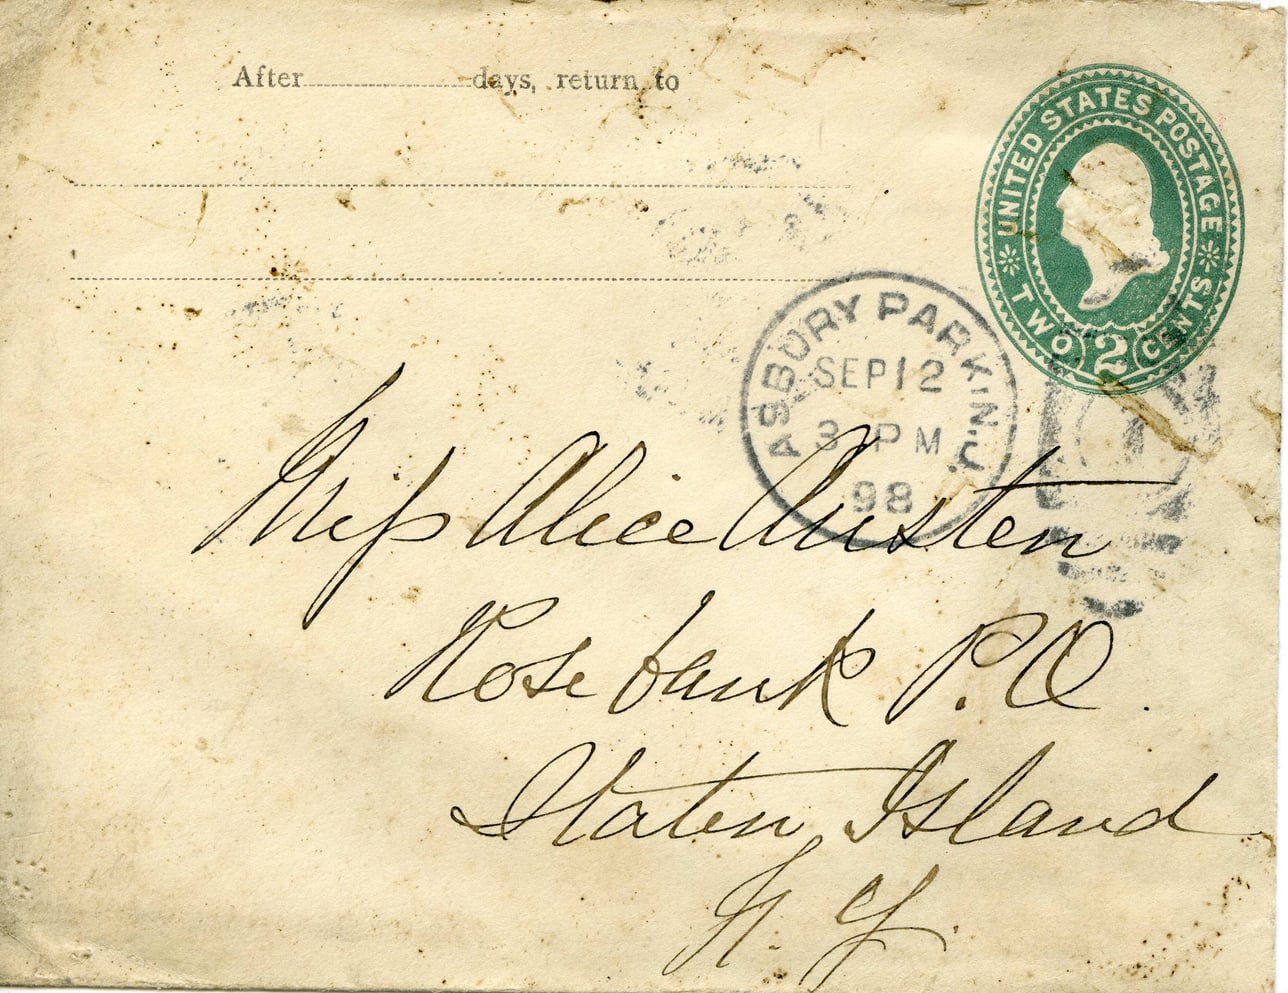 After ______ days, return to
UNITED STATES POSTAGE
TWO 2 CENTS
ASBURY PARK N.J.
SEP 12
3 PM
98
1
Miss Alice Austen
Rosebank P.O.
Staten Island
N.Y.